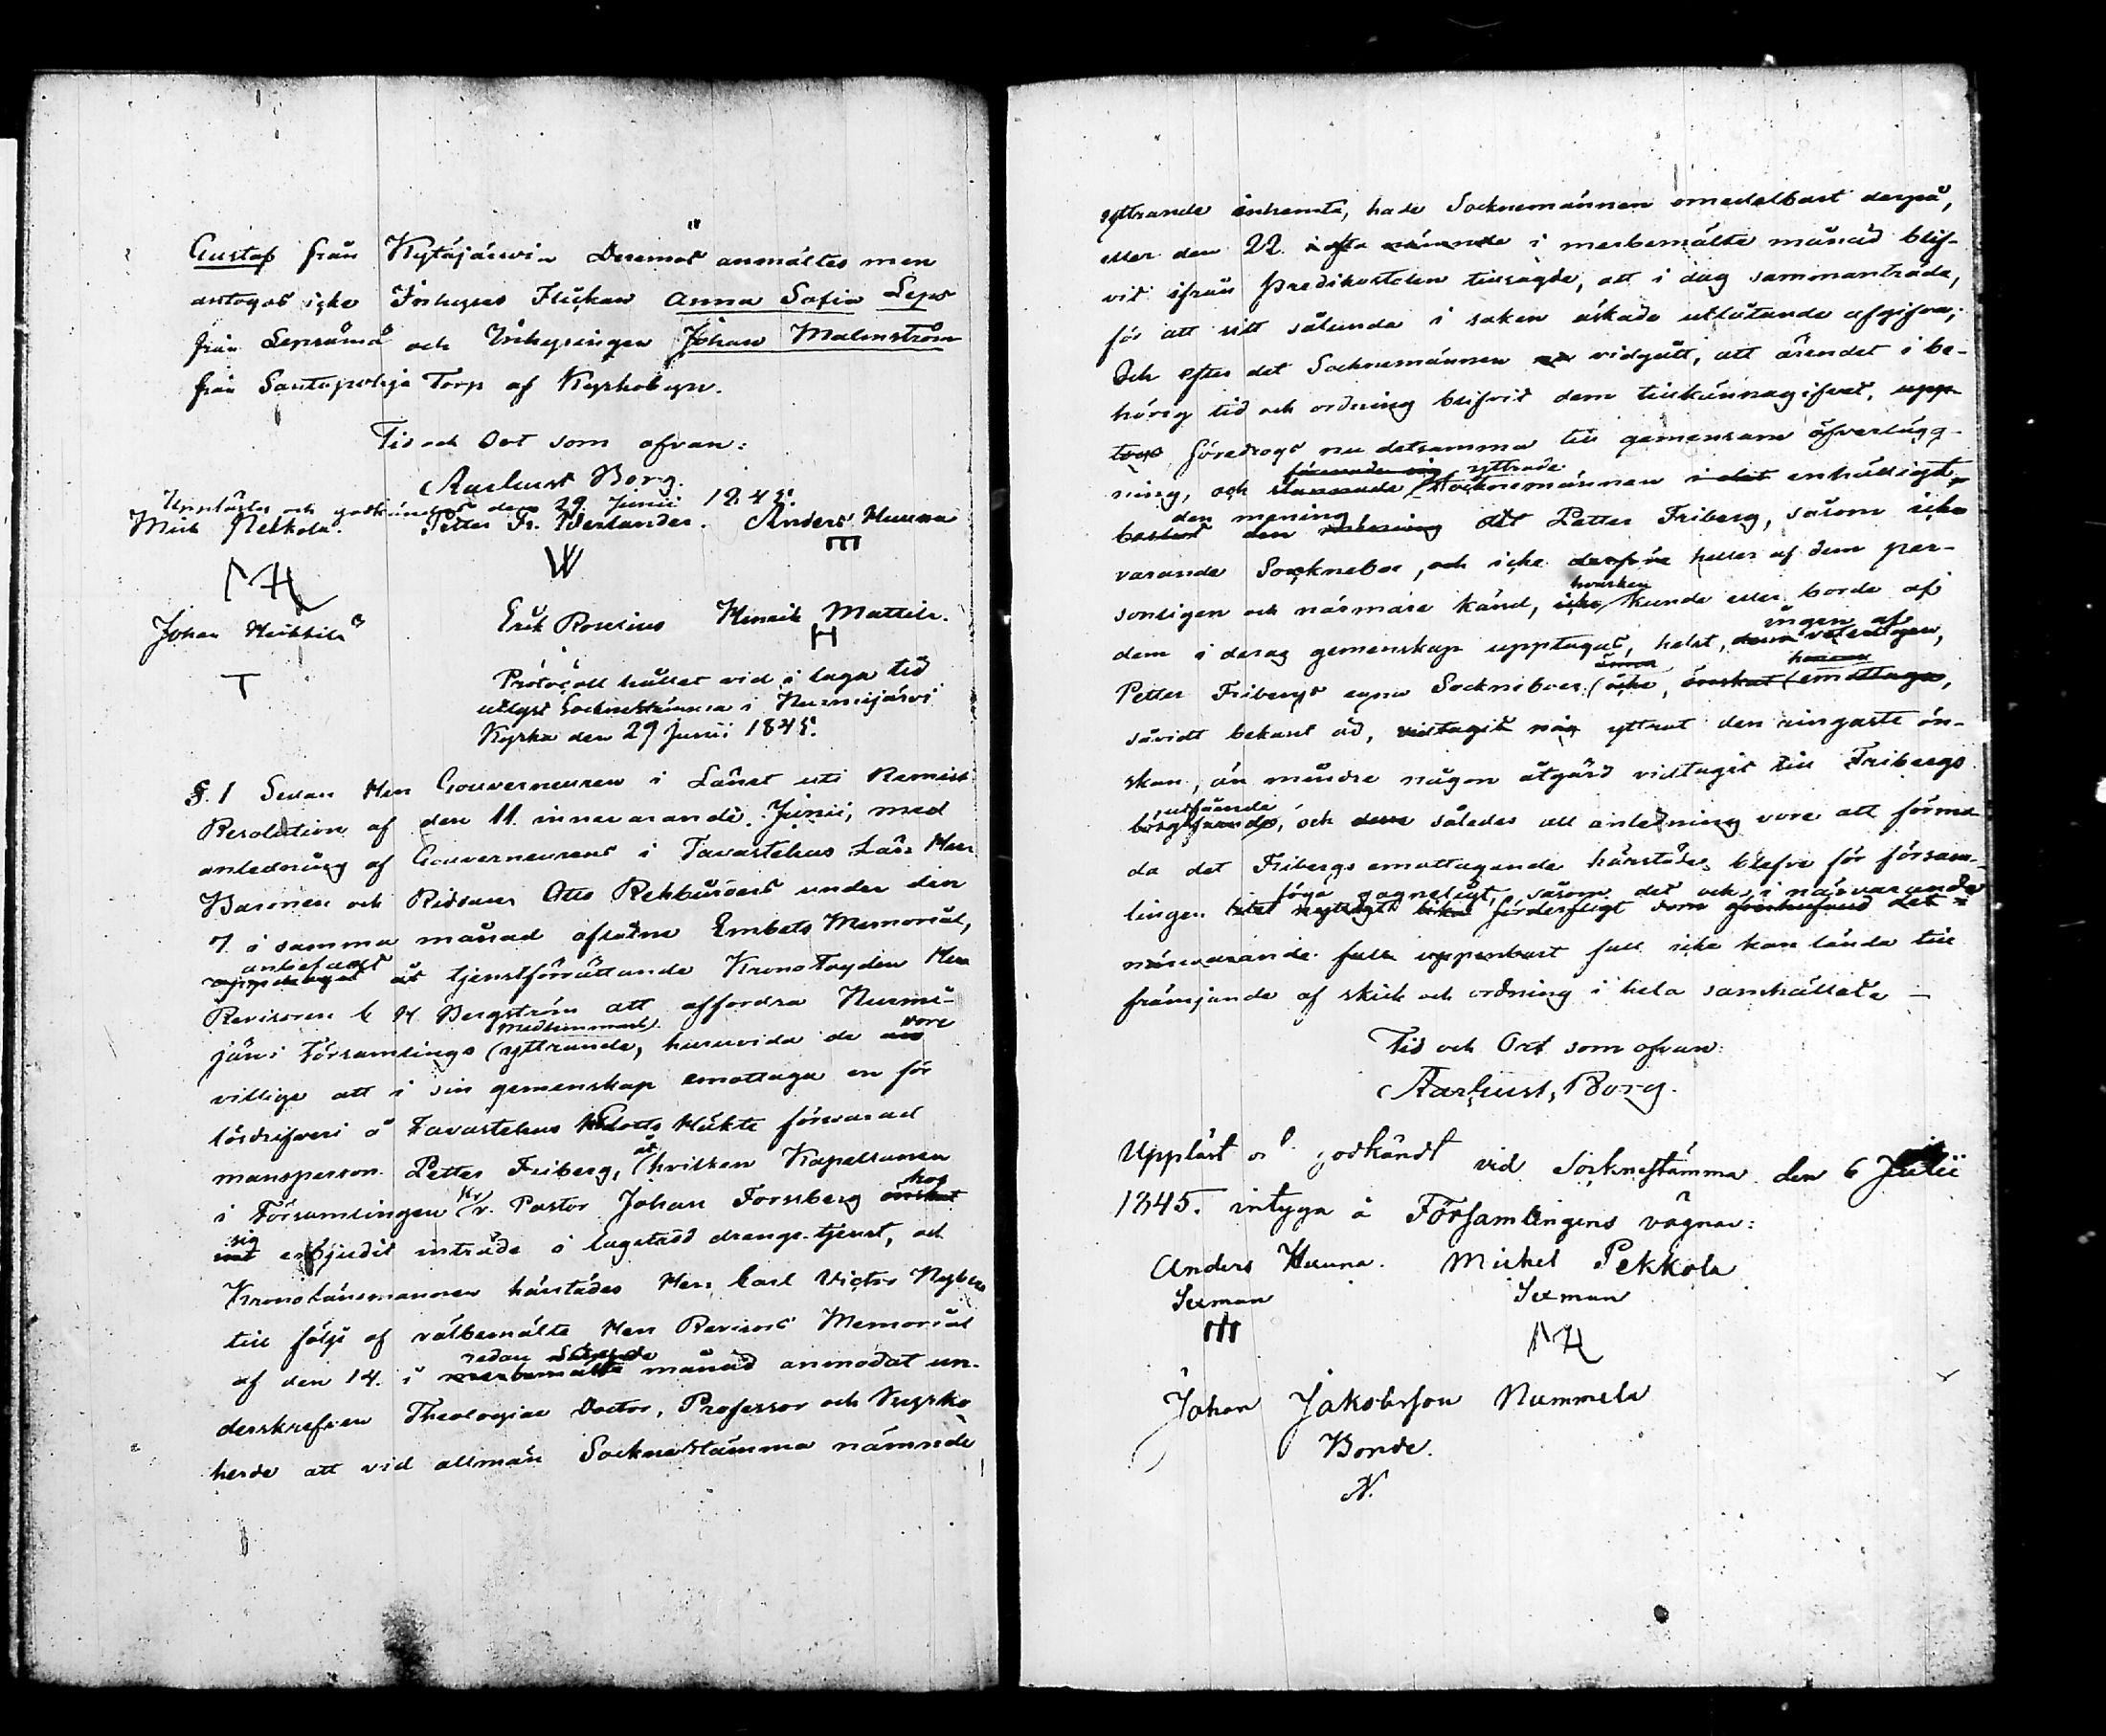 Gustaf från Kytäjärvi. Deremot anmältes men
antogos icke Inhyses Flickan Anna Sofia Leps
från Lepsämä och Inhysingen Johan Malmström
från Santapohja Torp af Kyrkobyn.
Tid och Ort som ofvan:
Aarhust Borg.
Uppläst och godkändt den 29 Junii 1845.
Mich Pekkola. Petter Fr. Verlander. Anders Huuna
Johan Heikkilä Erik Roselius Henrik Mattila.
H
T
Protocoll hållet vid i laga tid
utlyst Socknestämma i Nurmijärvi
Kyrka den 29 Junii 1845.
§. 1 Sedan Herr Gouverneuren i Länet uti Remiss
Resolution af den 11 innevarande Junii, med
anledning af Gouverneurens i Tavastehus Län Herr
Baronen och Riddaren Otto Rehbinders under den
7 i samma månad aflåtne Embets Memorial,
anbefallt
uppdraget åt tjenstförrättande Kronofogden Herr
Revisoren C H Bergström att affordra Nurmi-
Medlemmars vore
järvi Församlings yttrande, huruvida de
villige att i sin gemenskap emottaga en för
lösdrifveri å Tavastehus Slotts Häkte förvarad
åt
mansperson Petter Friberg, hvilken Kapellanen
Hr hos
i Församlingen v. Pastor Johan Forssberg önskat
sig
erbjudit inträde i lagstadd drenge-tjenst, och
Kronolänsmannen härstädes Herr Carl Victor Nyberg
till följe af välbemälte Herr Revisors Memorial
redan
af den 14 i merbemälte månad anmodat un-
derskrefven Theologiae Doctor, Professor och Kyrko
herde att vid allmän Socknestämma nämnde
yttrande inhemta, hade Socknemännen omedelbart derpå,
eller den 22 i ofta nämnde i merbemälte månad blif-
vit ifrån Predikostolen tillsagde, att i dag sammanträda,
för att sitt sålunda i saken äskade utlåtande afgifva;
Och efter det Socknemännen vidgått, att ärendet i be-
hörig tid och ordning blifvit dem tillkännagifvet, upp
togs föredrogs nu detsamma till gemensam öfverlägg-
förenade sig yttrade
ning, och stannade Socknemännen i det enhälligt
den mening
beslut den att Petter Friberg, såsom icke
varande Sockneboe, och icke derföre heller af dem per-
hvarken
sonligen och närmare känd, icke kunde eller borde af
ingen af
dem i deras gemenskap upptagas, helst,
Petter Fribergs egna Sockneboer icke, önskat emottaga,
såvidt bekant är, vidtagit någ yttrat den ringaste ön-
skan, än mindre någon åtgärd vidtagit till Fribergs
utfående
och således all anledning vore att förmo
da det Fribergs emottagande härstädes blefve för försam-
föga gagneligt, såsom det ock i närvarande
lingen förderfligt som det i
närvarande fall uppenbart fall icke kan lända till
främjande af skick och ordning i hela samhället. —
Tid och Ort som ofvan:
Aarhust, Borg.
Uppläst o. godkändt vid Socknestämma den 6 Julii
1845. intyga å Församlingens vägnar:
Anders Huuna. Michel Pekkola
Sexman Sexman
Johan Jakobsson Nummela
Bonde.
N.